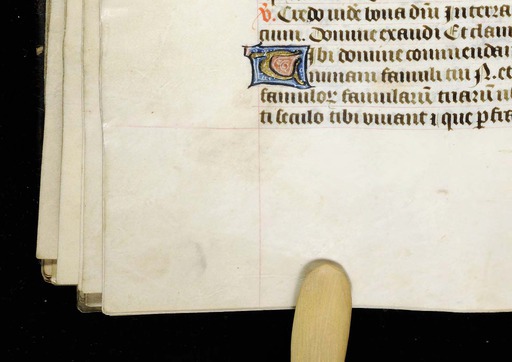 V. Credo vidē bona dñi In terra
cium. Domine exaudi Et clam
Tibi domine commendam
animam famuli tui N. et
famuloꝝ famularū tuarū
ti seculo tibi viuant ⁊ que ꝑ fra